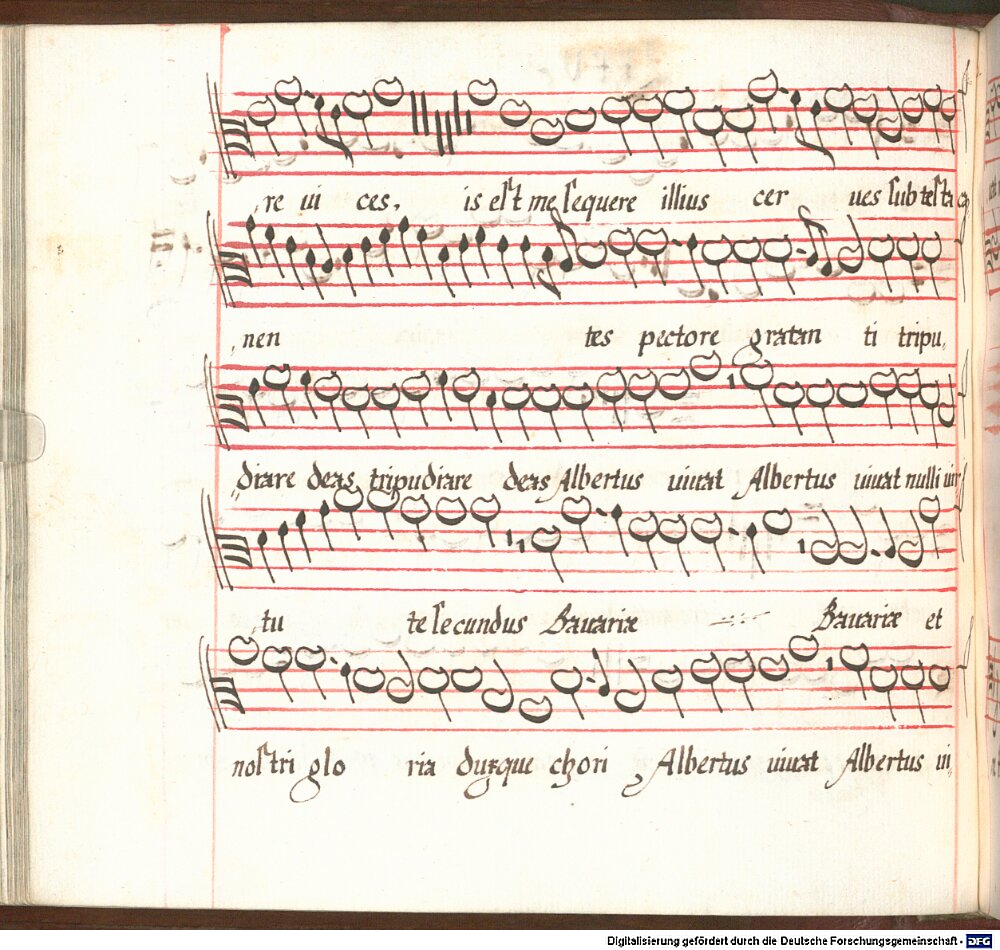 re ui ces, is est me sequere illius cer ues sub testa
nen tes pectore gratan ti tripu,
diare deas tripudiare deas Albertus uiuat Albertus uiuat nulli uir
tu te secundus Bauariæ Bauariæ et
nostri glo ria duxque chori, Albertus uiuat Albertus ui,
Digitalisierung gefördert durch die Deutsche Forschungsgemeinschaft - DFG